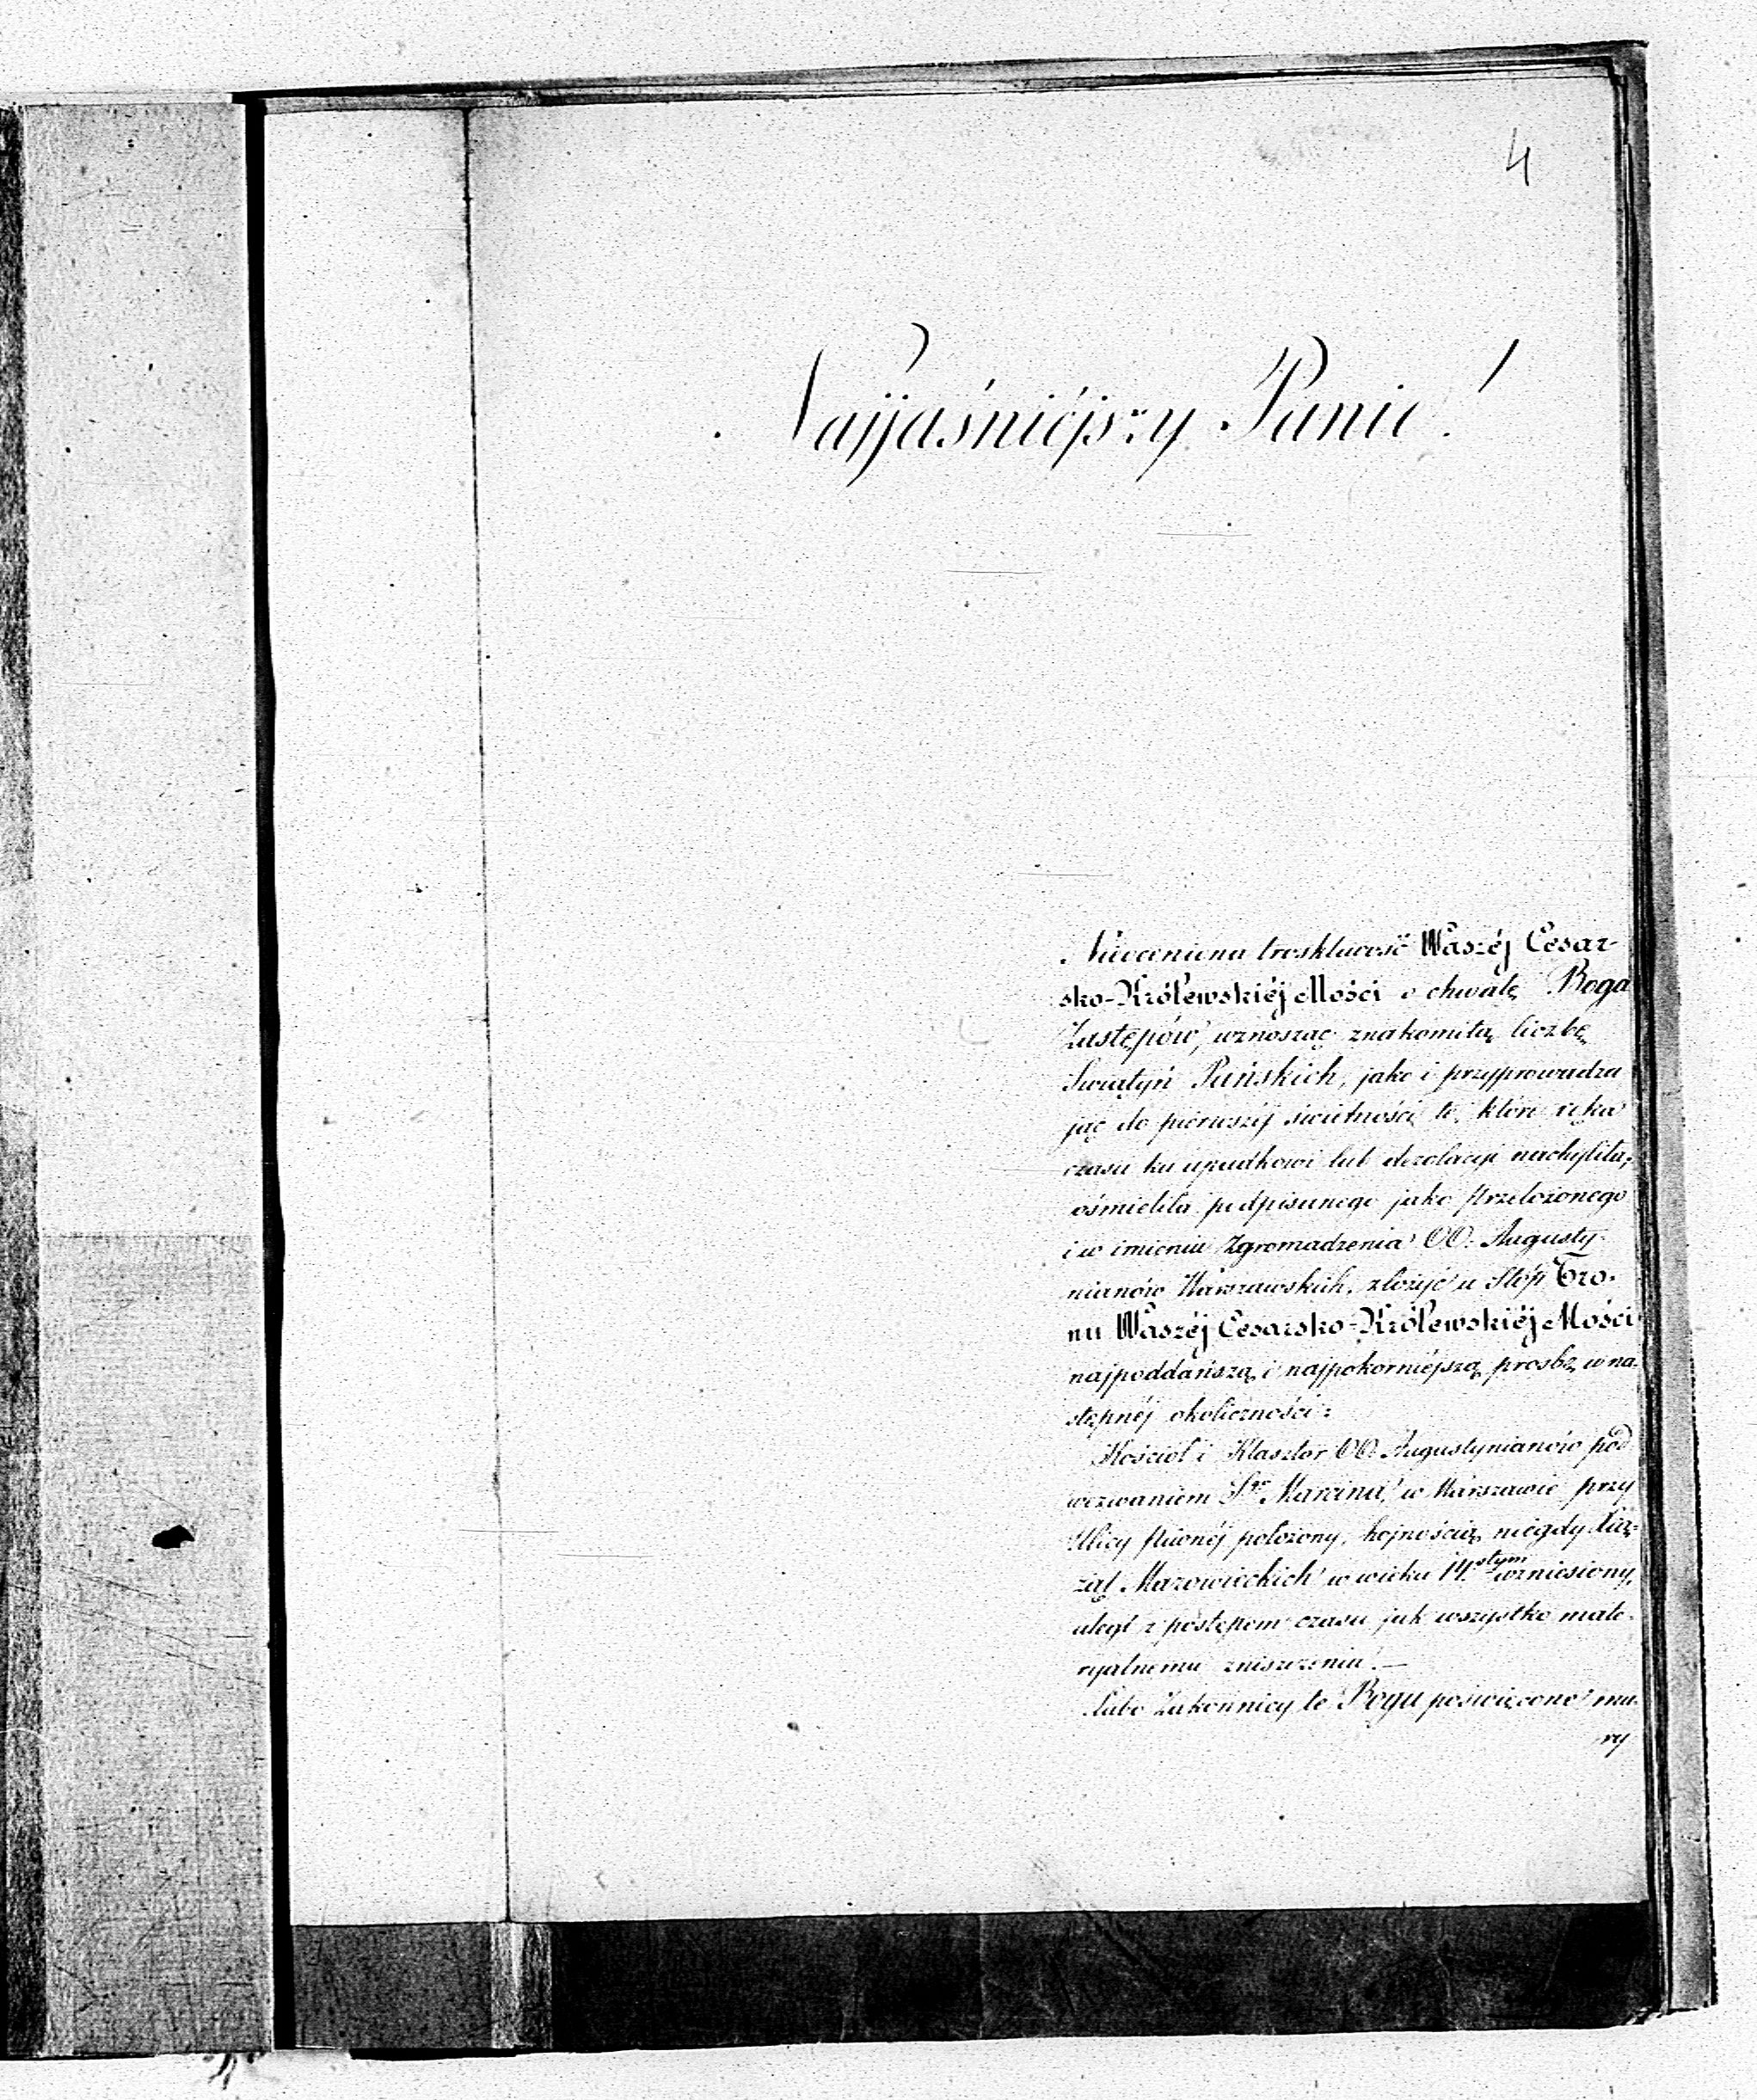 4
Najjaśniéjszy Panie!
Nieoceniona troskliwość Waszéj Cesar-
sko-Królewskiéj Mości o chwałę Boga
Zastępów, wznosząc znakomitą liczbę
Świątyń Pańskich, jako i przyprowadza
jąc do piérwszéj świetności te, które ręka
czasu ku upadkowi lub dezolacyi nachyliła,
ośmieliła podpisanego jako Przełożonego
i w imieniu Zgromadzenia OO. Augusty-
nianów Warszawskich, złożyć u Stóp Tro-
nu Waszéj Cesarsko-Królewskiéj Mości
najpoddańszą i najpokorniéjszą prośbę w na
stępnéj okoliczności:
Kościół i Klasztor OO. Augustynianów pod
wezwaniem Sgo Marcina, w Warszawie przy
Ulicy Piwnéj położony, hojnością niegdy Xią-
żąt Mazowieckich w wieku 14.stym wzniesiony,
uległ z postępem czasu jak wszystko mate-
ryalnemu zniszczeniu.—
Lubo Zakonnicy te Bogu poświęcone mu-
ry